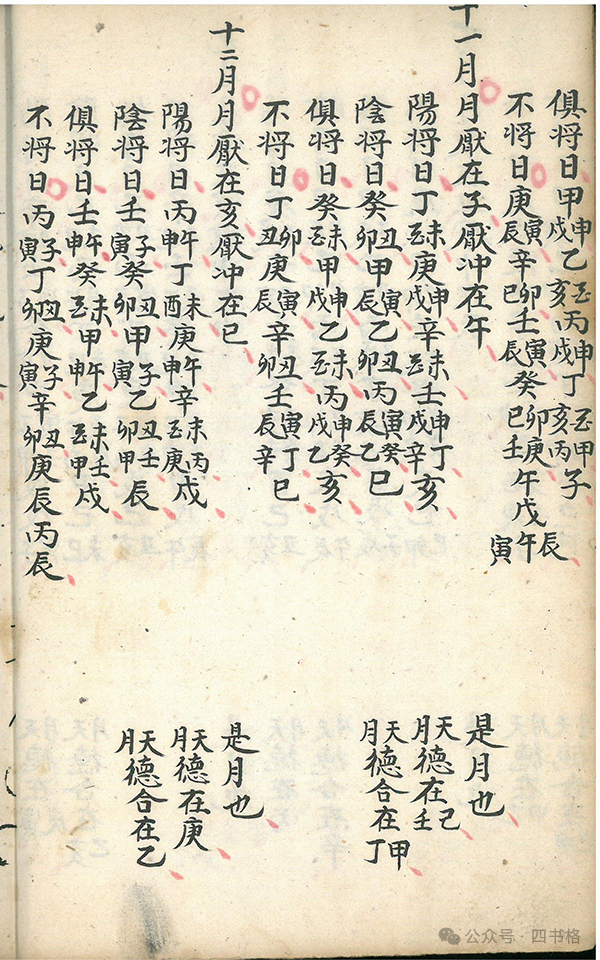 俱将日甲申戌乙酉亥丙申戌丁酉亥甲丙子
不将日庚寅辰辛卯巳壬寅辰癸卯巳庚壬午戊辰午寅
十一月月厭在子厭冲在午
陽将日丁未酉庚申戌辛未酉壬申戌丁辛亥
陰将日癸丑卯甲寅辰乙丑卯丙寅辰癸乙巳
俱将日癸未酉甲申戌乙未酉丙申戌癸乙亥
不将日丁卯丑庚寅辰辛丑卯壬寅辰丁辛巳
十二月月厭在亥厭冲在巳
陽将日丙午申丁未酉庚午申辛未酉丙庚戌
陰将日壬子寅癸丑卯甲子寅乙丑卯壬甲辰
俱将日壬午申癸未酉甲午申乙未酉壬甲戌
不将日丙子寅丁丑卯庚子寅辛丑卯庚辰丙辰
是月也
天月德在己壬
天月德合在甲丁
是月也
天月德在庚
天月德合在乙
公众号·四书格